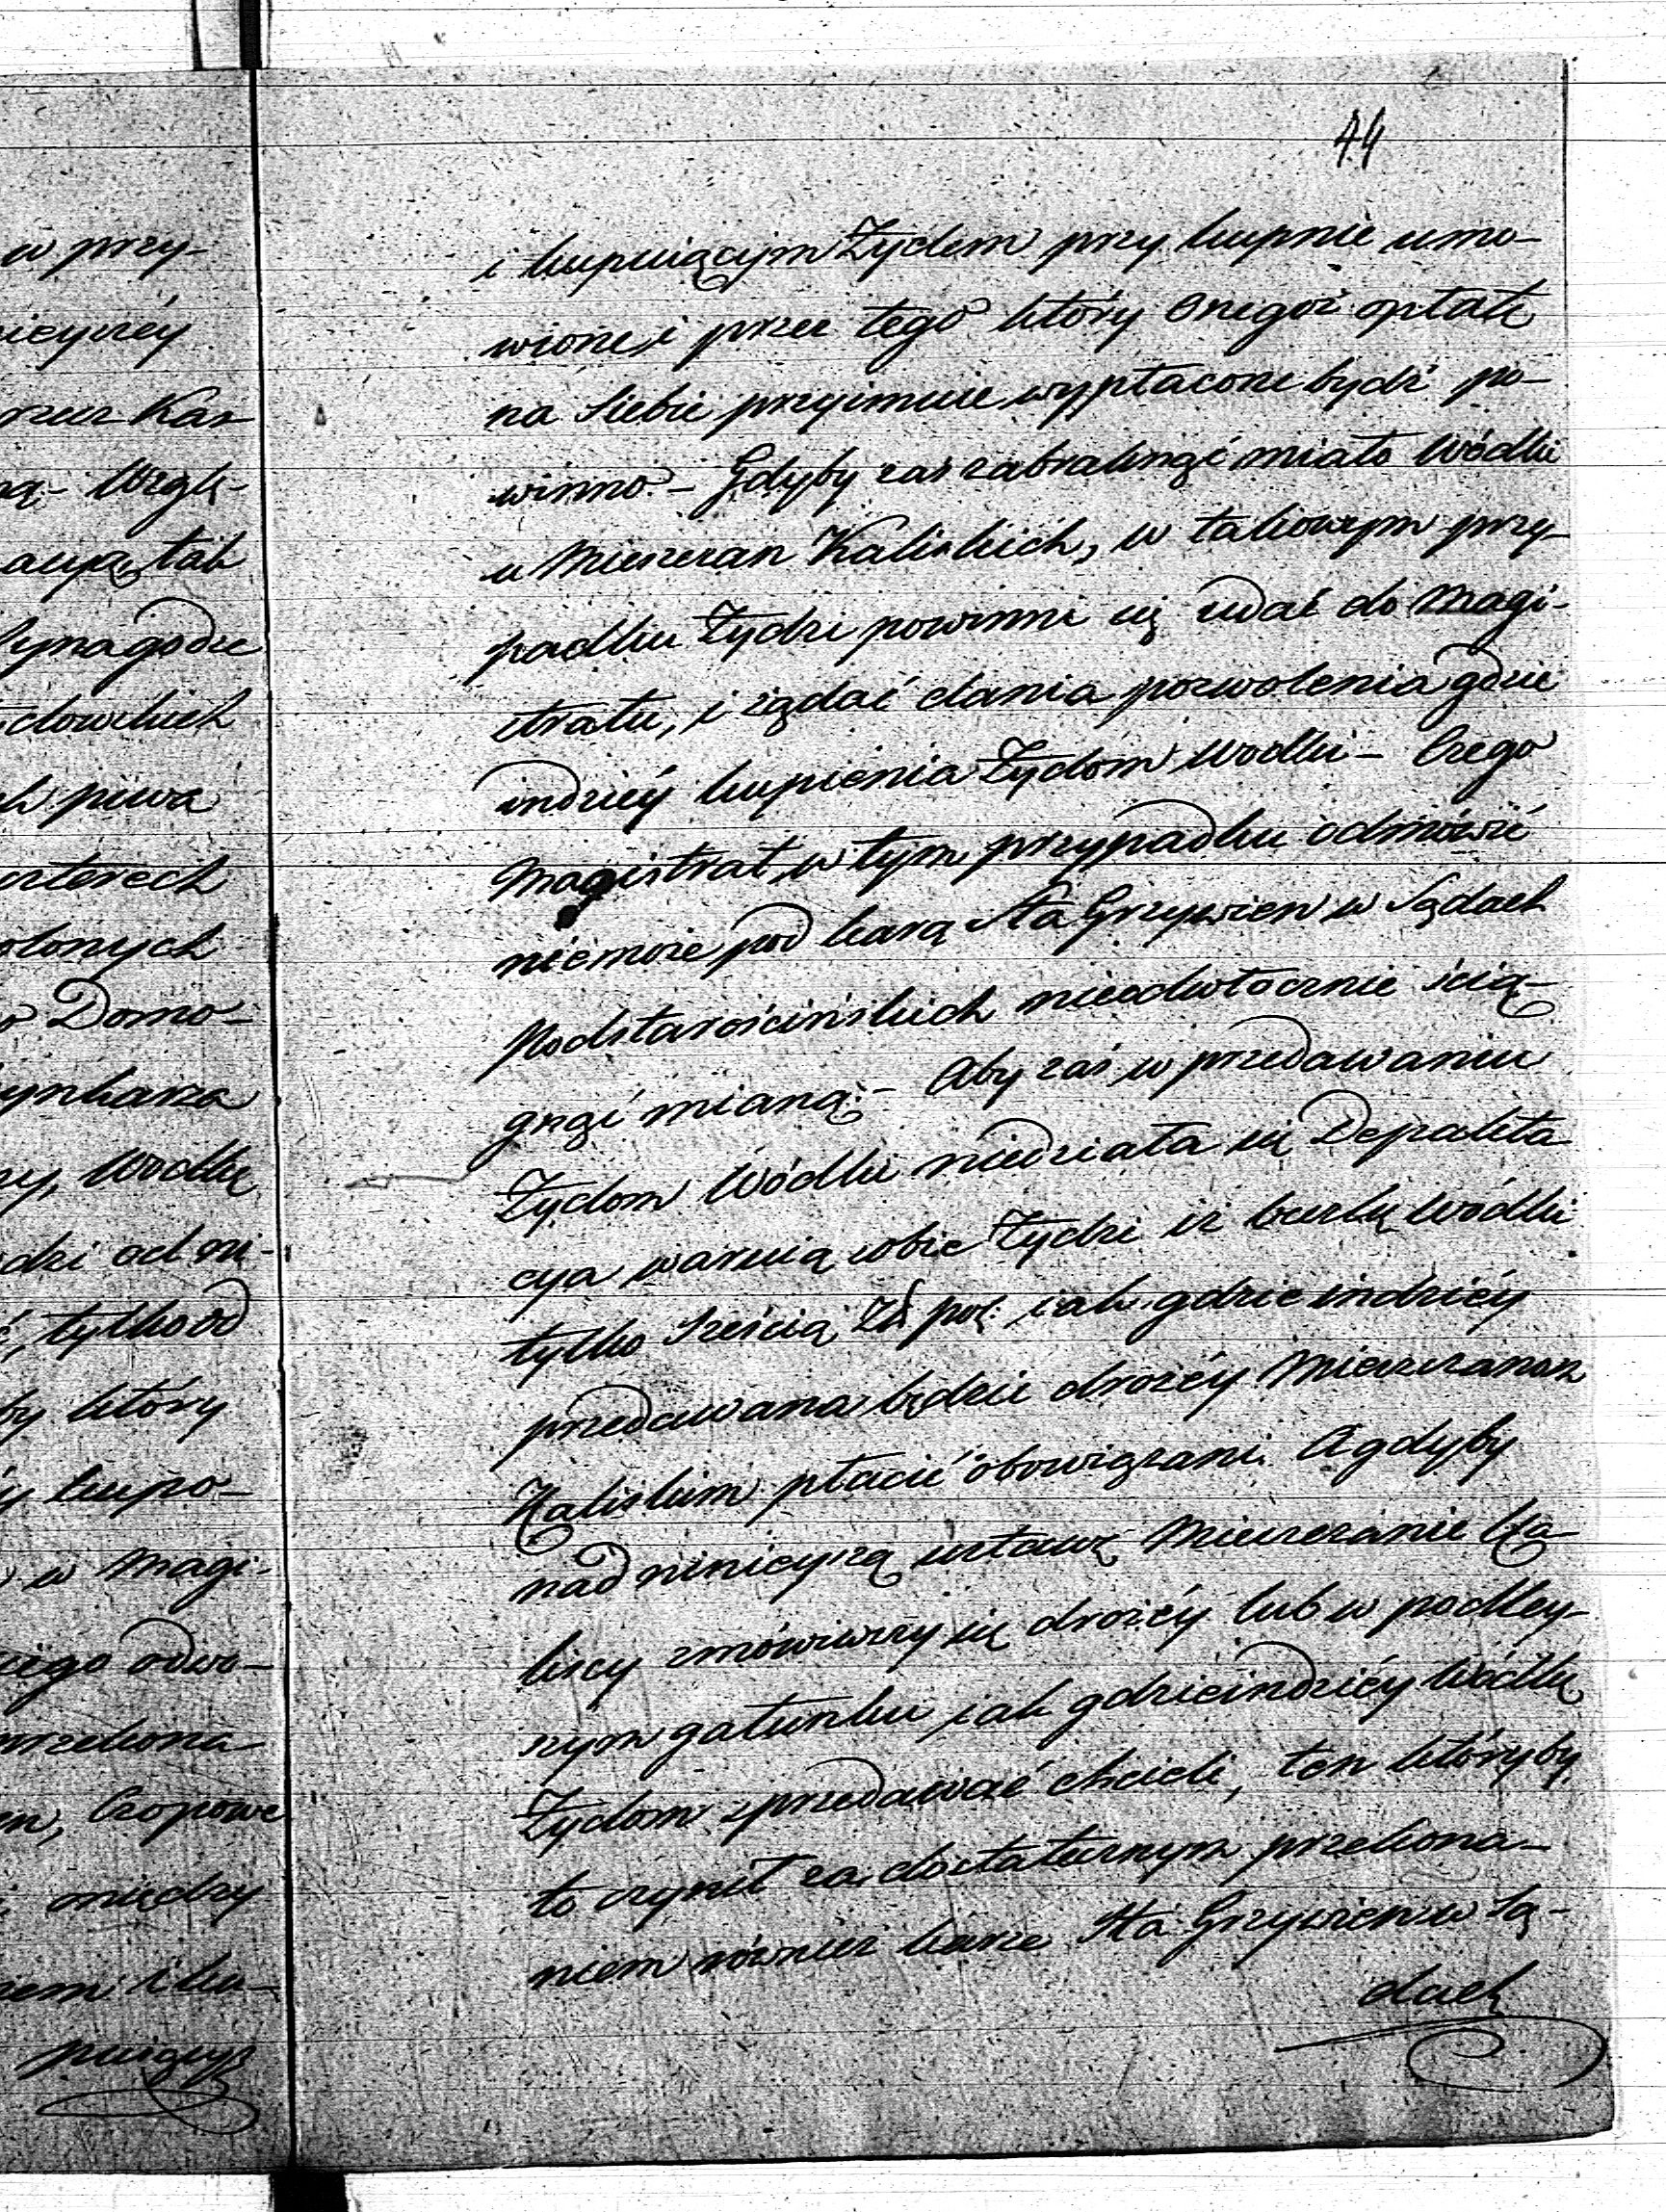 w przy-
rzez Kaz
tak
Synagodze
piwa
czterech
Domo-
Wodkę
tylko od
który
kupo-
w Magi-
odwo-
Czopowe
między
44
i kupuiącym Zydem przy kupnie umo-
wione, i przez tego który onegoż opłatę
na siebie przyimuie wypłacone bydź po-
winno. – Gdyby zaś zabraknąć miało Wódki
u Mieszczan Kaliskich, w takowym przy-
padku Zydzi powinni się udać do Magi-
stratu, i żądać dania pozwolenia gdzie
indziéy kupienia Zydom Wodki – Czego
Magistrat w tym przypadku odmówić
niemoże pod karą Sta Grzywien w Sądach
Podstarościńskich nieodwłocznie ścią-
gnąć mianą. – Aby zaś w przedawaniu
Zydom Wódki niedziała się Depakta-
cya waruią sobie Zydzi iż beczkę Wódki
tylko sześcią Zł. pol: iak gdzie indziéy
przedawana będzie drożéy Mieszczanom
Kaliskim płacić obowiązani. A gdyby
nad ninieyszą ustawę Mieszczanie Ka-
liscy zmówiwszy się drożéy lub w podley-
szym gatunku iak gdzieindziéy Wódkę
Zydom sprzedawać chcieli, ten któryby
to czynił za dostatecznym przekona-
niem również karze Sta Grzywien w Są-
dach